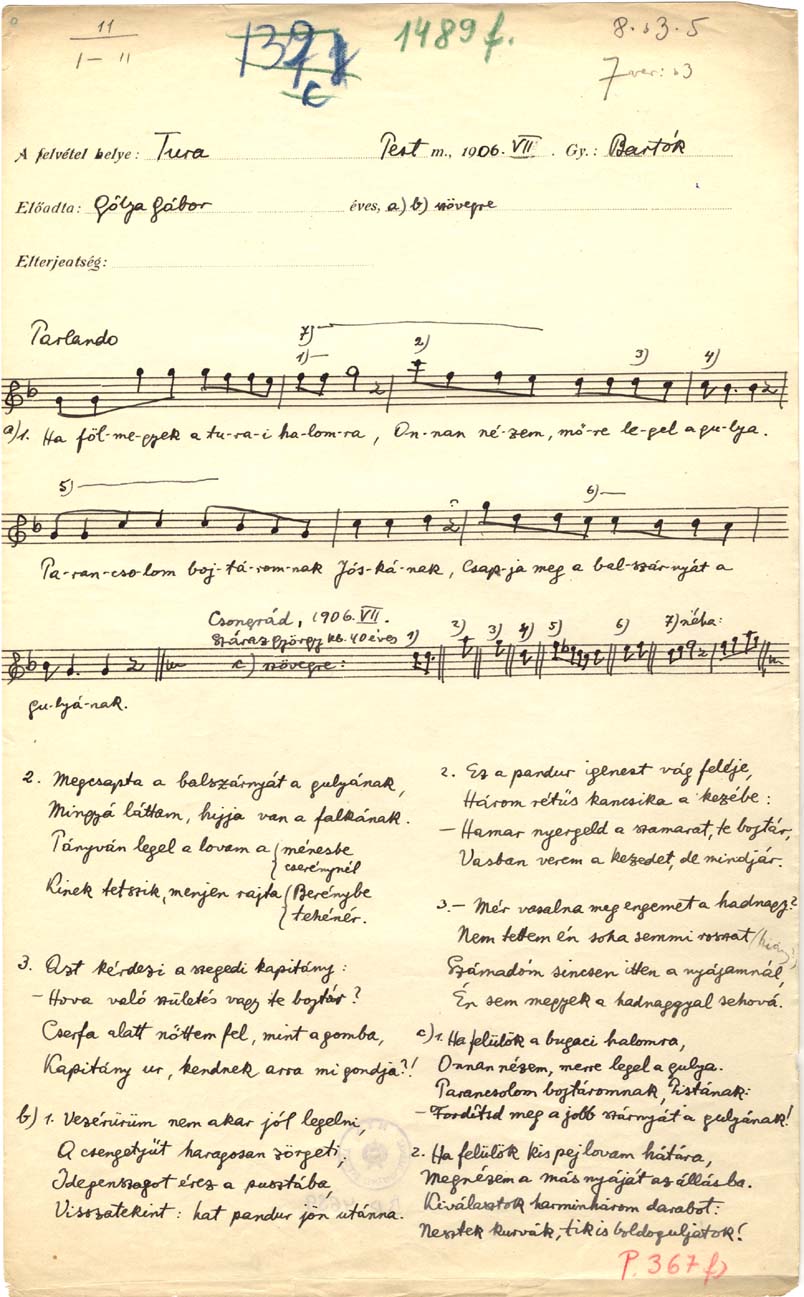 11
I – II
1489 f.
8. 3. 5
7 ver: 3
A felvétel helye: Tura Pest m., 1906. VII. Gy.: Bartók
Előadta: Gólya Gábor éves, a) b) szövegre
Elterjedtség:
Parlando
7)
1) 2) 3) 4)
a) 1. Ha föl-me-gyek a tu-ra-i ha-lom-ra, On-nan né-zem, mő-re le-gel a gu-lya.
5) 6)
Pa-ran-cso-lom boj-tá-rom-nak Jós-ká-nak, Csap-ja meg a bal-szár-nyát a
Csongrád, 1906. VII.
Száraz György kb. 40 éves 1) 2) 3) 4) 5) 6) 7) néha:
c) szövegre:
gu-lyá-nak.
2. Megcsapta a balszárnyát a gulyának,
Mingyá láttam, hijja van a falkának.
Pányván legel a lovam a ménesbe
cserénynél
Kinek tetszik, menjen rajta Berénybe
tehénér.
3. Azt kérdezi a szegedi kapitány:
– Hova való születés vagy te bojtár?
Cserfa alatt nőttem fel, mint a gomba,
Kapitány ur, kendnek arra mi gondja?!
b) 1. Vezérürüm nem akar jól legelni,
A csengetyűt haragosan zörgeti,
Idegenszagot érez a pusztába,
Visszatekint: hat pandur jön utánna.
2. Ez a pandur igenest vág feléje,
Három rétűs kancsika a kezébe:
– Hamar nyergeld a szamarat, te bojtár,
Vasban verem a kezedet, de mindjár.
3. – Mér vasalna meg engemet a hadnagy?
Nem tettem én soha semmi rosszat
Számadóm sincsen itten a nyájamnál,
Én sem megyek a hadnaggyal sehová.
c) 1. Ha felülök a bugaci halomra,
Onnan nézem, merre legel a gulya.
Parancsolom bojtáromnak, Pistának:
– Fordítsd meg a jobb szárnyát a gulyának!
2. Ha felülök kis pej lovam hátára,
Megnézem a más nyáját az állásba.
Kiválasztok harminhárom darabot:
Nesztek kurvák, tik is boldoguljatok!
P. 367 f)